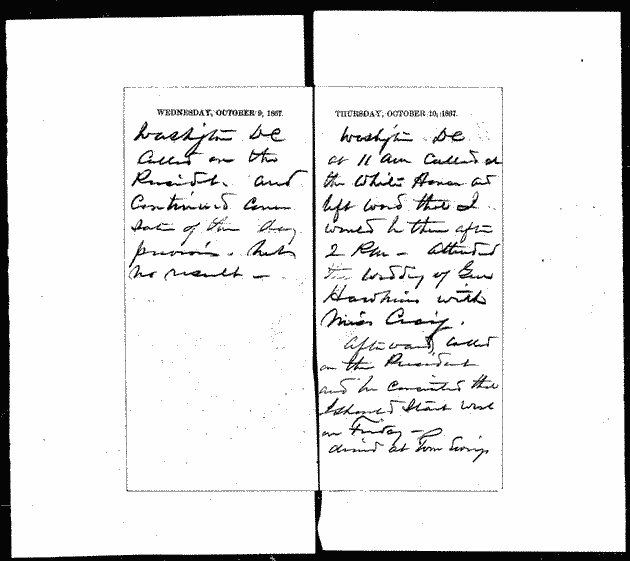 WEDNESDAY, OCTOBER 9, 1867.
Washgtn DC
Called on the
President. and
Continued Conver
sation of the day
previous. but
no result –
THURSDAY, OCTOBER 10, 1867.
Washgtn DC
at 11 am Called at
the White House and
left word that I
would be there after
2 P.m – attended
the Wedding of Genl
Hawkins with
Miss Craig.
Afterward called
on the President
and he consented that
I should Start West
on Friday –
dined at Tom Ewings